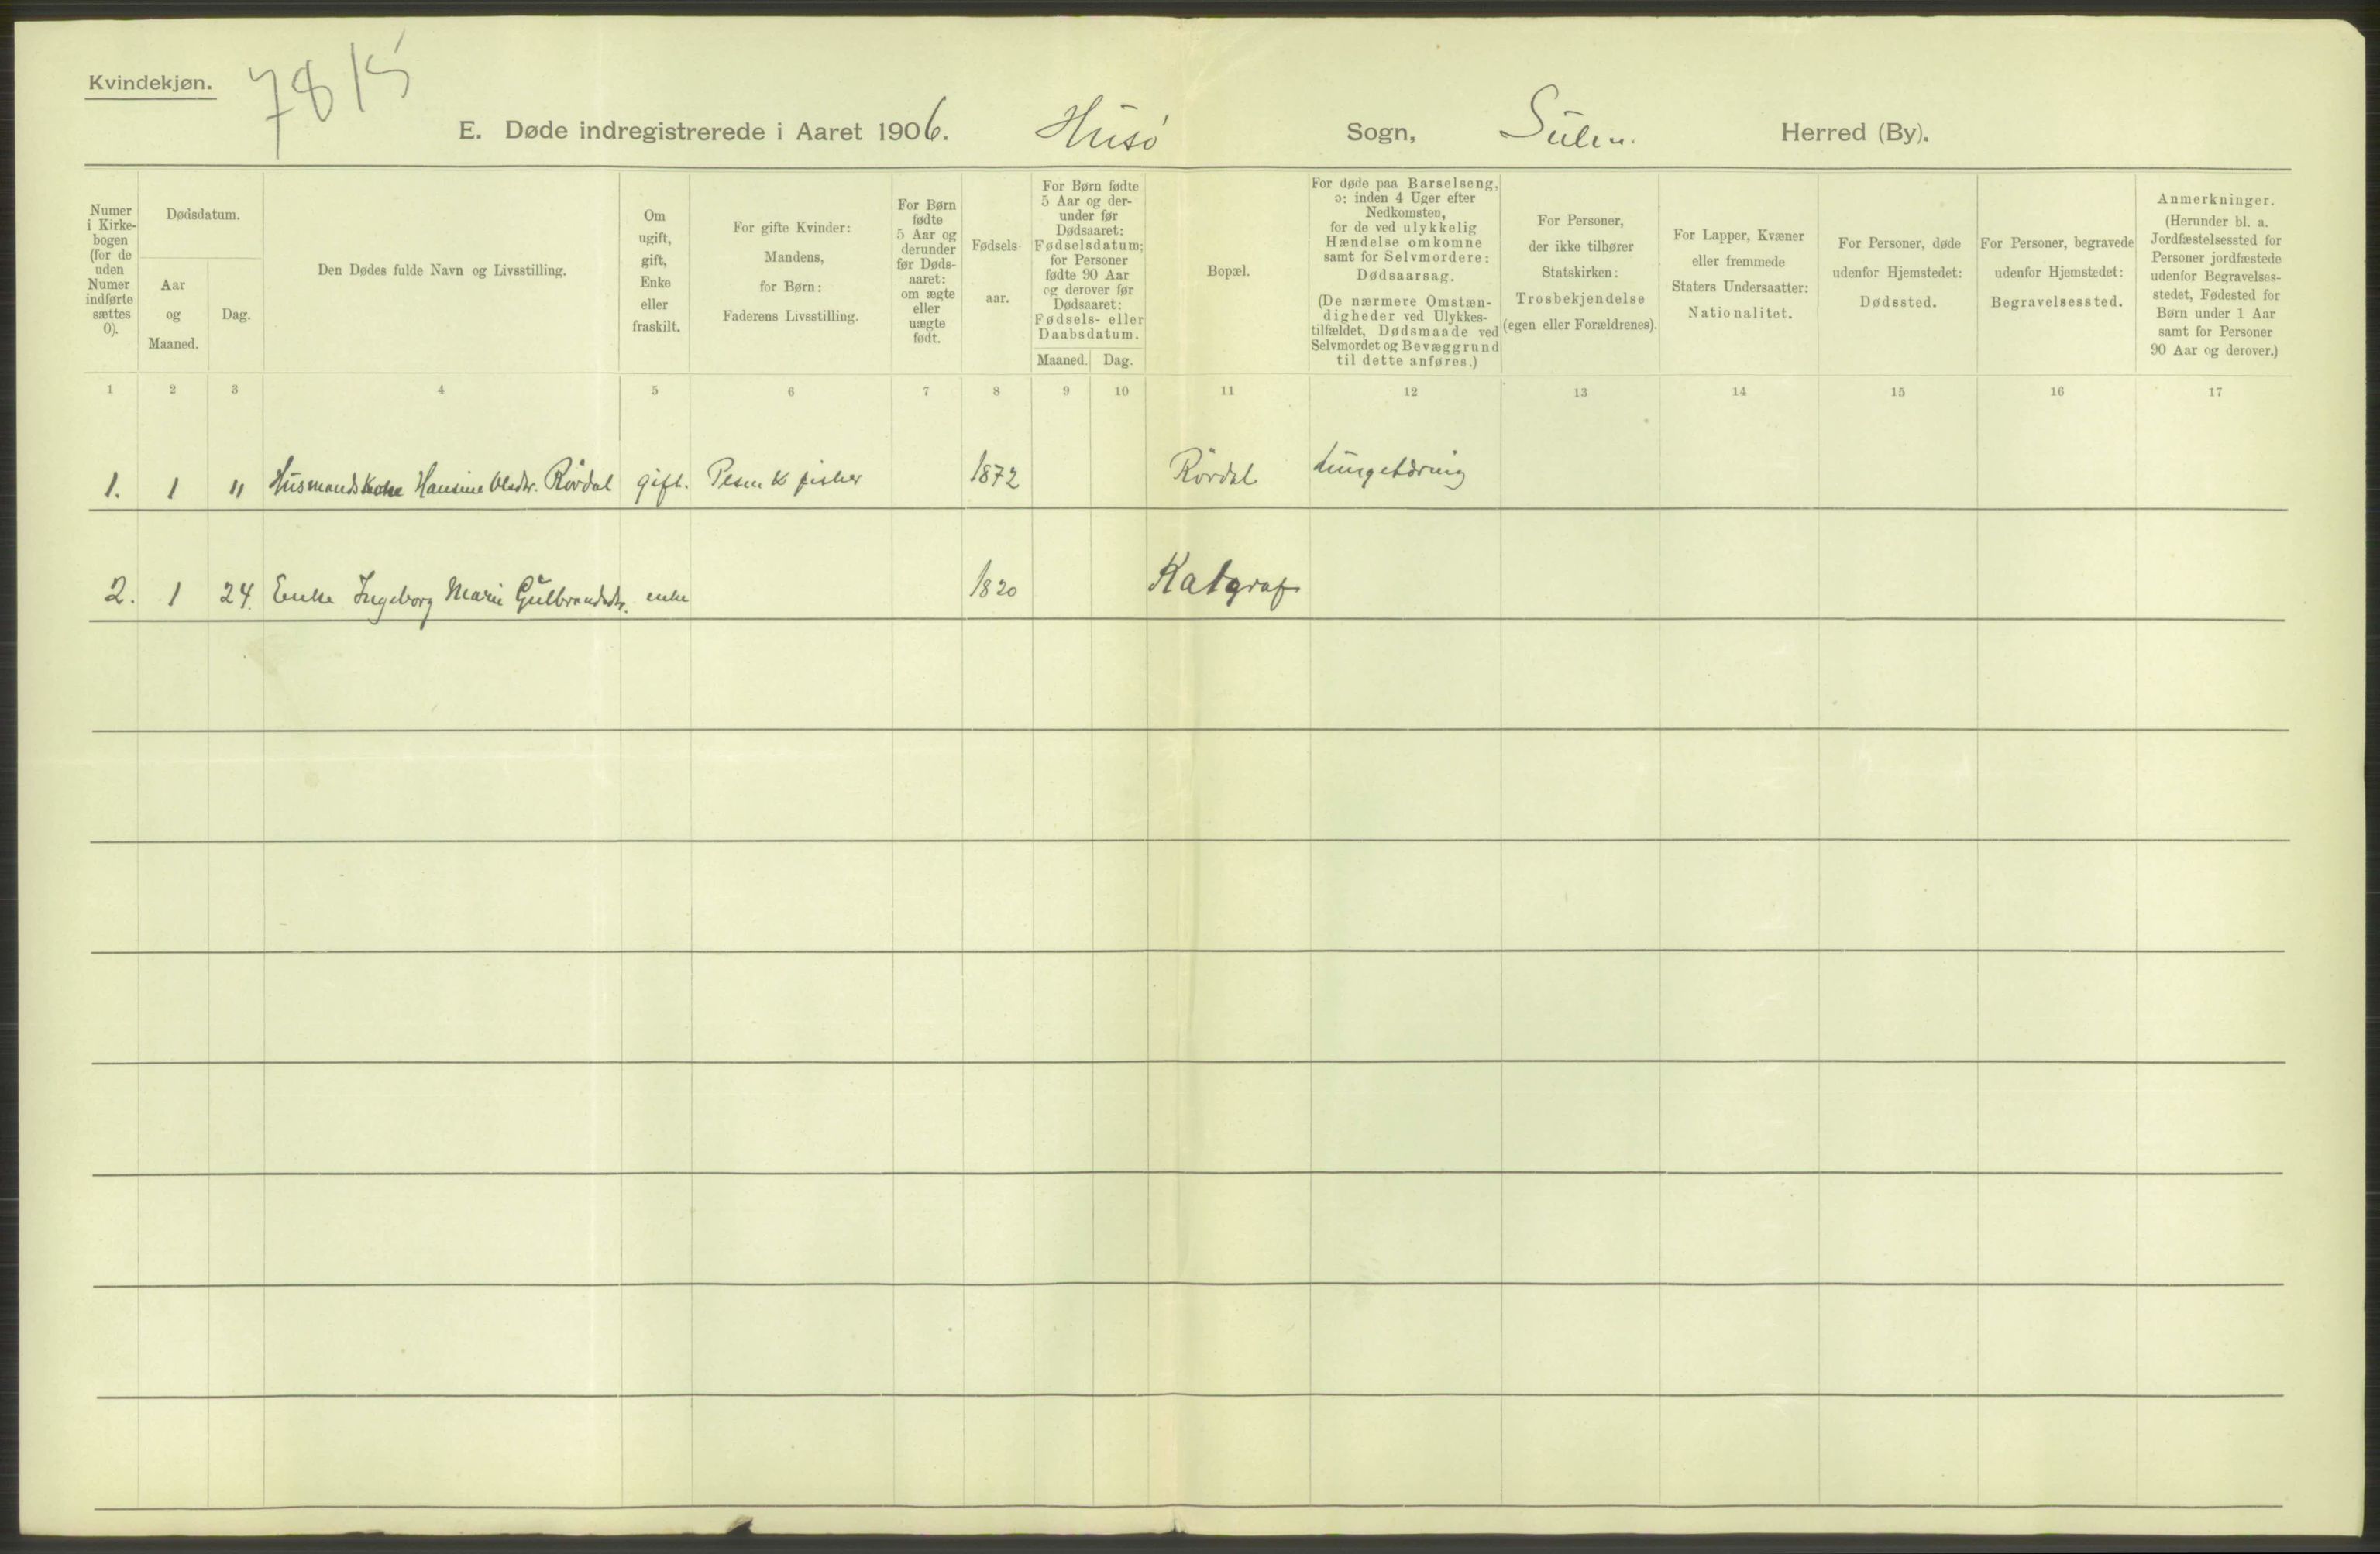 Kvindekjøn.
7815
E. Døde indregistrerede i Aaret 1906. Husö Sogn, Sulen. Herred (By).
Numer i Kirke-bogen (for de uden Numer indførte sættes 0).
Dødsdatum.
Aar og Maaned.
Dag.
Den Dødes fulde Navn og Livsstilling.
Om ugift, gift, Enke eller fraskilt.
For gifte Kvinder: Mandens, for Børn: Faderens Livsstilling.
For Børn fødte 5 Aar og derunder før Døds-aaret: om ægte eller uægte født.
Fødsels-aar.
For Børn fødte 5 Aar og der-under før Dødsaaret: Fødselsdatum; for Personer fødte 90 Aar og derover før Dødsaaret: Fødsels- eller Daabsdatum.
Maaned. Dag.
Bopæl.
For døde paa Barselseng, ɔ: inden 4 Uger efter Nedkomsten, for de ved ulykkelig Hændelse omkomne samt for Selvmordere: Dødsaarsag.
(De nærmere Omstæn-digheder ved Ulykkes-tilfældet, Dødsmaade ved Selvmordet og Bevæggrund til dette anføres.)
For Personer, der ikke tilhører Statskirken: Trosbekjendelse (egen eller Forældrenes).
For Lapper, Kvæner eller fremmede Staters Undersaatter: Nationalitet.
For Personer, døde udenfor Hjemstedet: Dødssted.
For Personer, begravede udenfor Hjemstedet: Begravelsessted.
Anmerkninger.
(Herunder bl. a. Jordfæstelsessted for Personer jordfæstede udenfor Begravelses-stedet, Fødested for Børn under 1 Aar samt for Personer 90 Aar og derover.)
1 2 3 4 5 6 7 8 9 10 11 12 13 14 15 16 17
1. 1 11 Husmandskone Hansine Olsdtr. Rördal gift. fisker 1872 Rördal Lungetæring
2. 1 24. Enke Ingeborg Marie Gulbrandsdtr. enke 1820 Katgraf